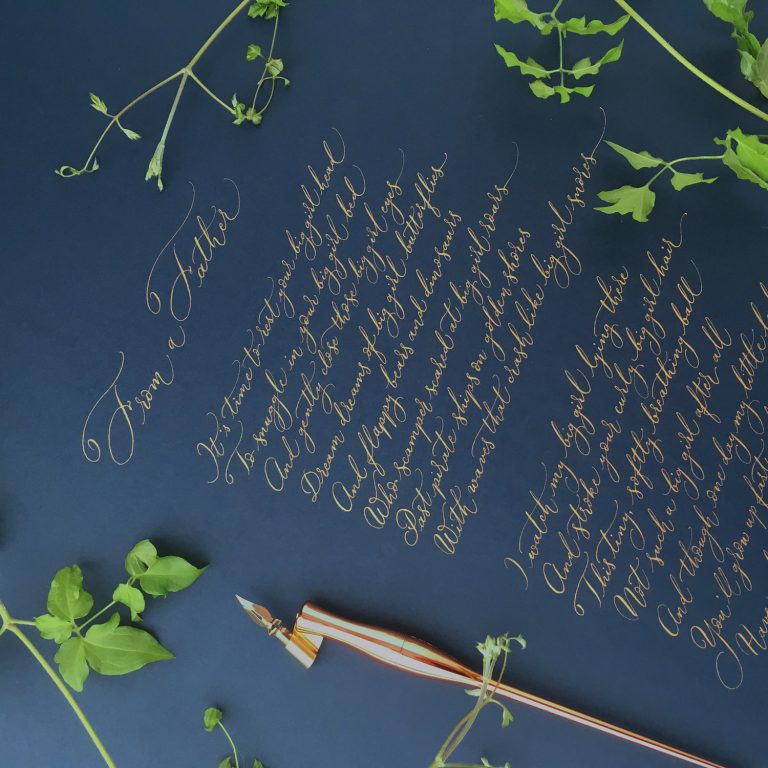 From a Father
It's time to rest your big girl head
To snuggle in your big girl bed
And gently close those big girl eyes
Dream dreams of big girl butterflies
And flappy bears and dinosaurs
Who scamper scared at big girl roars
Past pirate ships on golden shores
With waves that crash like big girl snores
I watch my big girl lying there
And stroke your curly big girl hair
This tiny, softly breathing ball
Not such a big girl after all
And though one day my little
You'll grow up fast